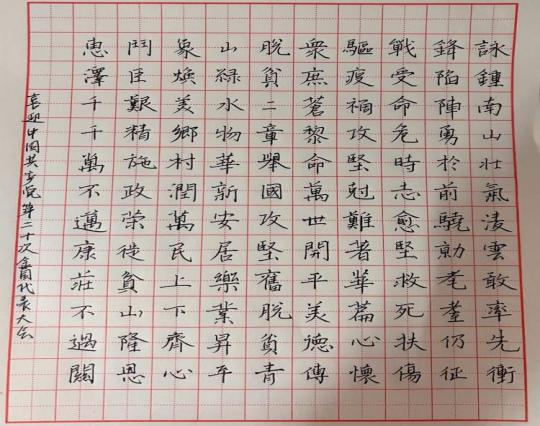 詠鍾南山壯氣凌雲敢率先衝
鋒陷陣勇於前驍勍耄耋仍征
戰受命危時志愈堅救死扶傷
驅疫禍攻堅尅難著華篇心懷
衆庶蒼黎命萬世開平美德傳
脫貧二章舉國攻堅奮脫貧青
山緑水物華新安居樂業昇平
象煥美鄉村潤萬民上下齊心
鬥艱精施政榮徙貧山隆恩
惠澤千千萬不邁康莊不過關
喜迎中国共产党第二十次全国代表大会